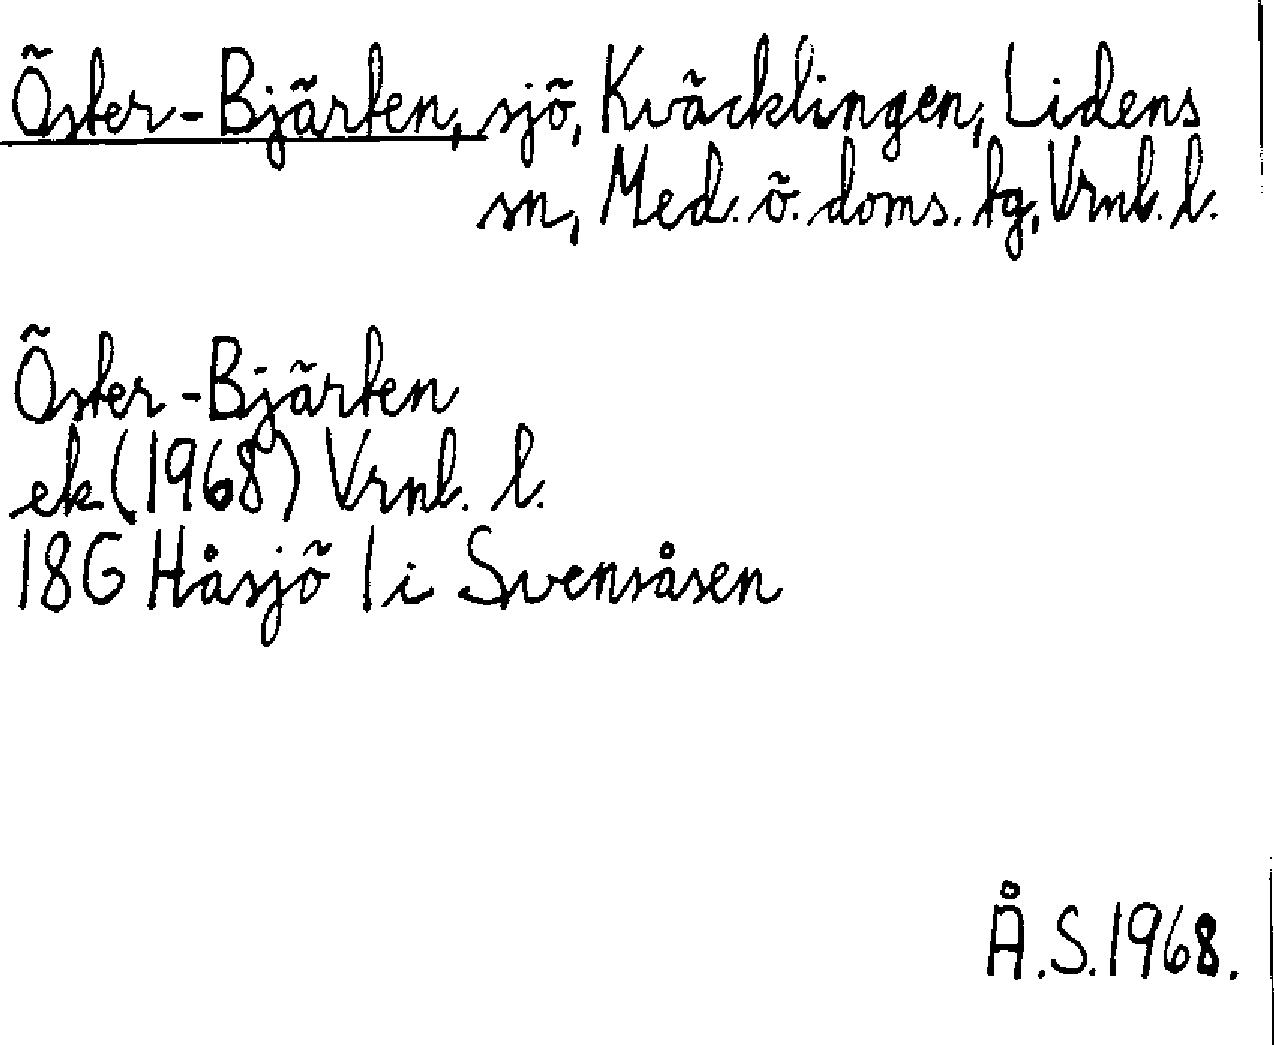 Öster-Bjärten, sjö, Kväcklingen, Lidens
sn, Med. ö. doms. tg, Vrnl. l.
Öster-Bjärten
ek (1968) Vrnl. l.
18G Håsjö 1 i Svensåsen
Å.S. 1968.